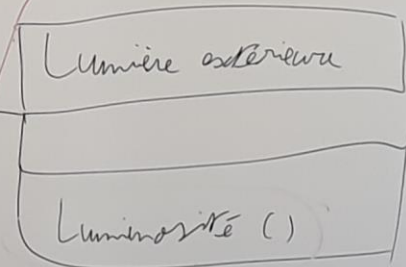 Lumière extérieure
Luminosité ()